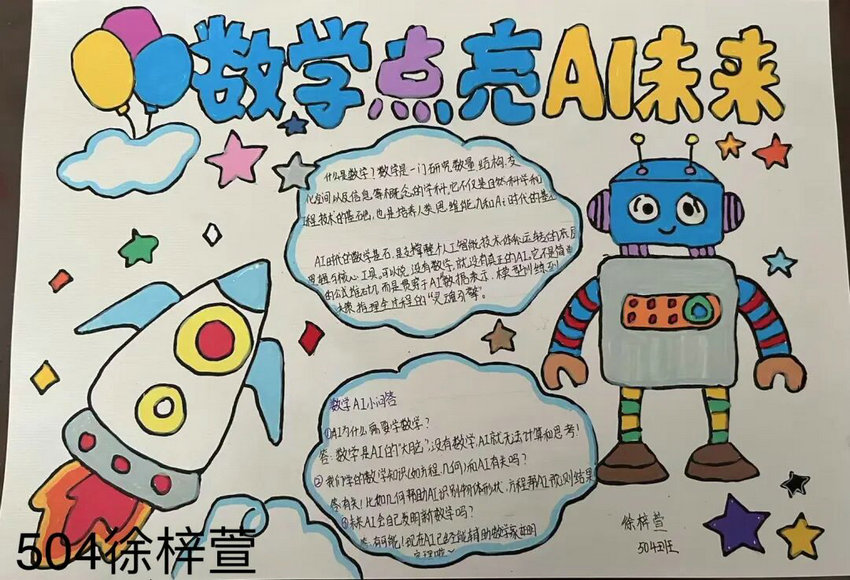 数学点亮AI未来
什么是数学?数学是一门研究数量、结构、变
化空间以及信息等概念的学科,它不仅是自然科学和
工程技术的基础,也是培养人类思维能力和AI时代的基
AI时代的数学基石,是支撑整个人工智能技术体系运转的底层
逻辑与核心工具。可以说,没有数学,就没有真正的AI。它不是简单
的公式堆砌,而是贯穿于AI数据表示、模型训练到
决策推理全过程的“灵魂引擎”。
数学AI小问答
①AI为什么需要学数学?
答:数学是AI的“大脑”,没有数学,AI就无法计算和思考!
②我们学的数学知识(如方程、几何)和AI有关吗?
答:有关!比如几何帮助AI识别物体形状,方程帮AI预测结果
③未来AI会自己发明新数学吗?
答:有可能!现在AI已经能辅助数学家证明
定理啦~
徐梓萱
504班
504徐梓萱